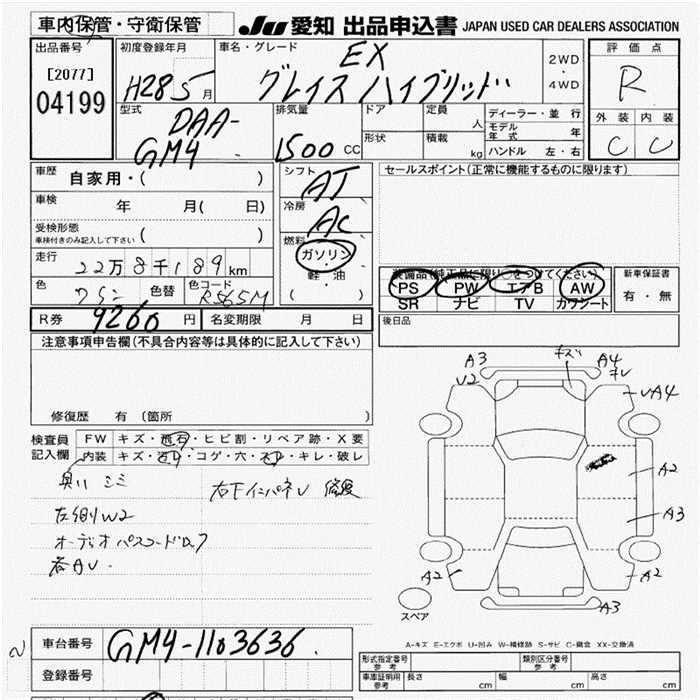 車内保管・守衛保管
JU 愛知 出品申込書 JAPAN USED CAR DEALERS ASSOCIATION
出品番号
[2077]
04199
初度登録年月
H28 5月
車名・グレード
EX
グレイス ハイブリッド
2WD
・
4WD
評価点
R
外装 内装
C C
型式
DAA-
GM4
排気量
1500 CC
ドア
形状
定員
人
積載
kg
ディーラー・並行
モデル年式 年
ハンドル 左・右
車歴
自家用・( )
車検
年 月( 日)
受検形態
車検付きのみ記入して下さい ( )
走行
22万8千189km
色
色替
色コード
R565M
シフト
AT
冷房
AC
燃料
ガソリン
・
軽・油
( )
セールスポイント(正常に機能するものに限ります)
装備品(純正品に限り○をつけてください)
PS PW エアB AW
SR ナビ TV カワシート
新車保証書
有・無
R券 9260円 名変期限 月 日
後日品
注意事項申告欄(不具合内容等は具体的に記入して下さい)
修復歴 有(箇所
検査員
記入欄
FW キズ・飛石・ヒビ割・リペア跡・X要
内装 キズ・汚レ・コゲ・穴・スレ・キレ・破レ
左側W2
オーディオパスコードロック
A3
V2
キズ
A4
キレ
A4
A2
A3
A2
A2
A3
スペア
A-キズ E-エクボ U-凹み W-補修跡 S-サビ C-腐食 XX-交換済
車台番号 GM4-1103636
登録番号
形式指定番号
参考
類別区分番号
参考
車庫証明用
参考
長さ cm 幅 cm 高さ cm